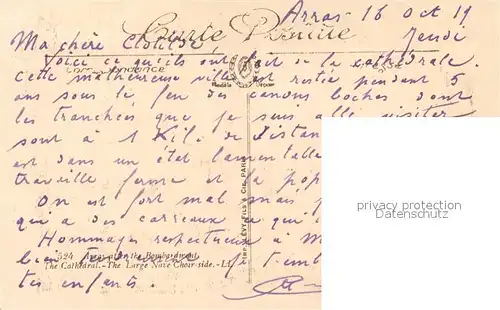 Arras 16 Oct 19
Carte Postale
Jeudi
Ma chère Clotilde
Voici ce qu'ils ont fait de la cathédrale.
Correspondance
Cette malheureuse ville est restée pendant 5
ans sous le feu des canons boches dont
les tranchées que je suis allé visiter
sont à 1 Kil. de distan
est dans un état lamentable
travaille ferme et la pop
On est fort mal mais
qui a des carreaux
Hommages respectueux à M
524 Arras after the Bombardment
The Cathedral - The Large Nave Choir side. - LL
bien je t'emb
tes enfants.
Imp. LÉVY Fils & Cie PARIS
PHOTO-WINGENDER
PHOTO-WINGENDER